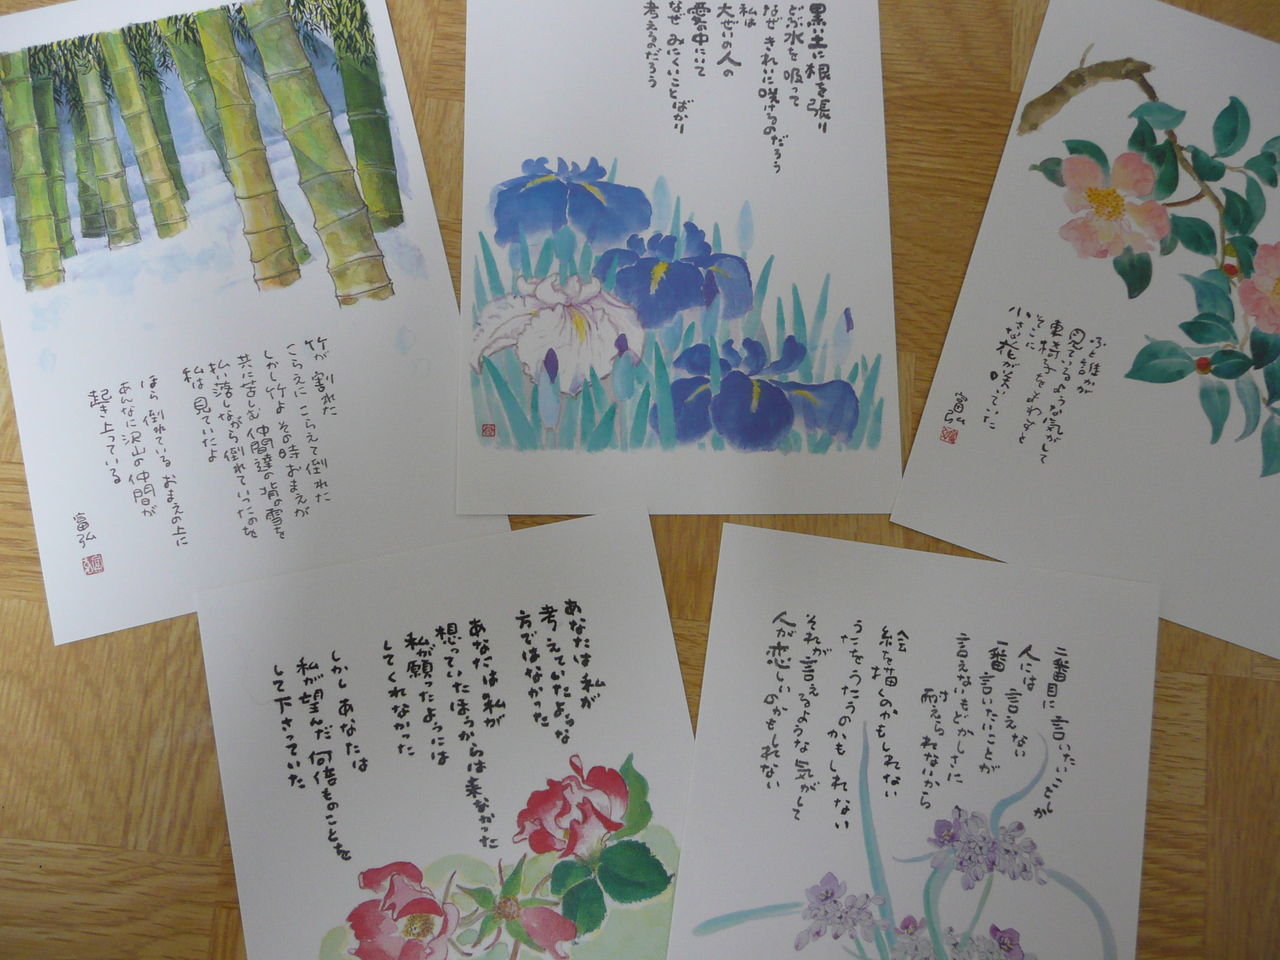 竹が割れた
こらえにこらえて倒れた
しかし竹よ その時おまえが
共に苦しむ仲間達の背の雪を
払い落しながら倒れていったのを
私は見ていたよ
ほら 倒れている おまえの上に
あんなに沢山の仲間が
起き上っている
富弘
黒い土に根を張り
どぶ水を吸って
なぜきれいに咲けるのだろう
私は
大ぜいの人の
愛の中にいて
なぜみにくいことばかり
考えるのだろう
ふと誰かが
見ているような気がして
車椅子をまわすと
そこに
小さな花が咲いていた
富弘
あなたは私が
考えていたような
方ではなかった
あなたは私が
想っていたほうからは来なかった
私が願ったようには
してくれなかった
しかしあなたは
私が望んだ何倍ものことを
して下さっていた
二番目に言いたいことしか
人には言えない
一番言いたいことが
言えないもどかしさに
耐えられないから
絵を描くのかもしれない
うたをうたうのかもしれない
それが言えるような気がして
人が恋しいのかもしれない